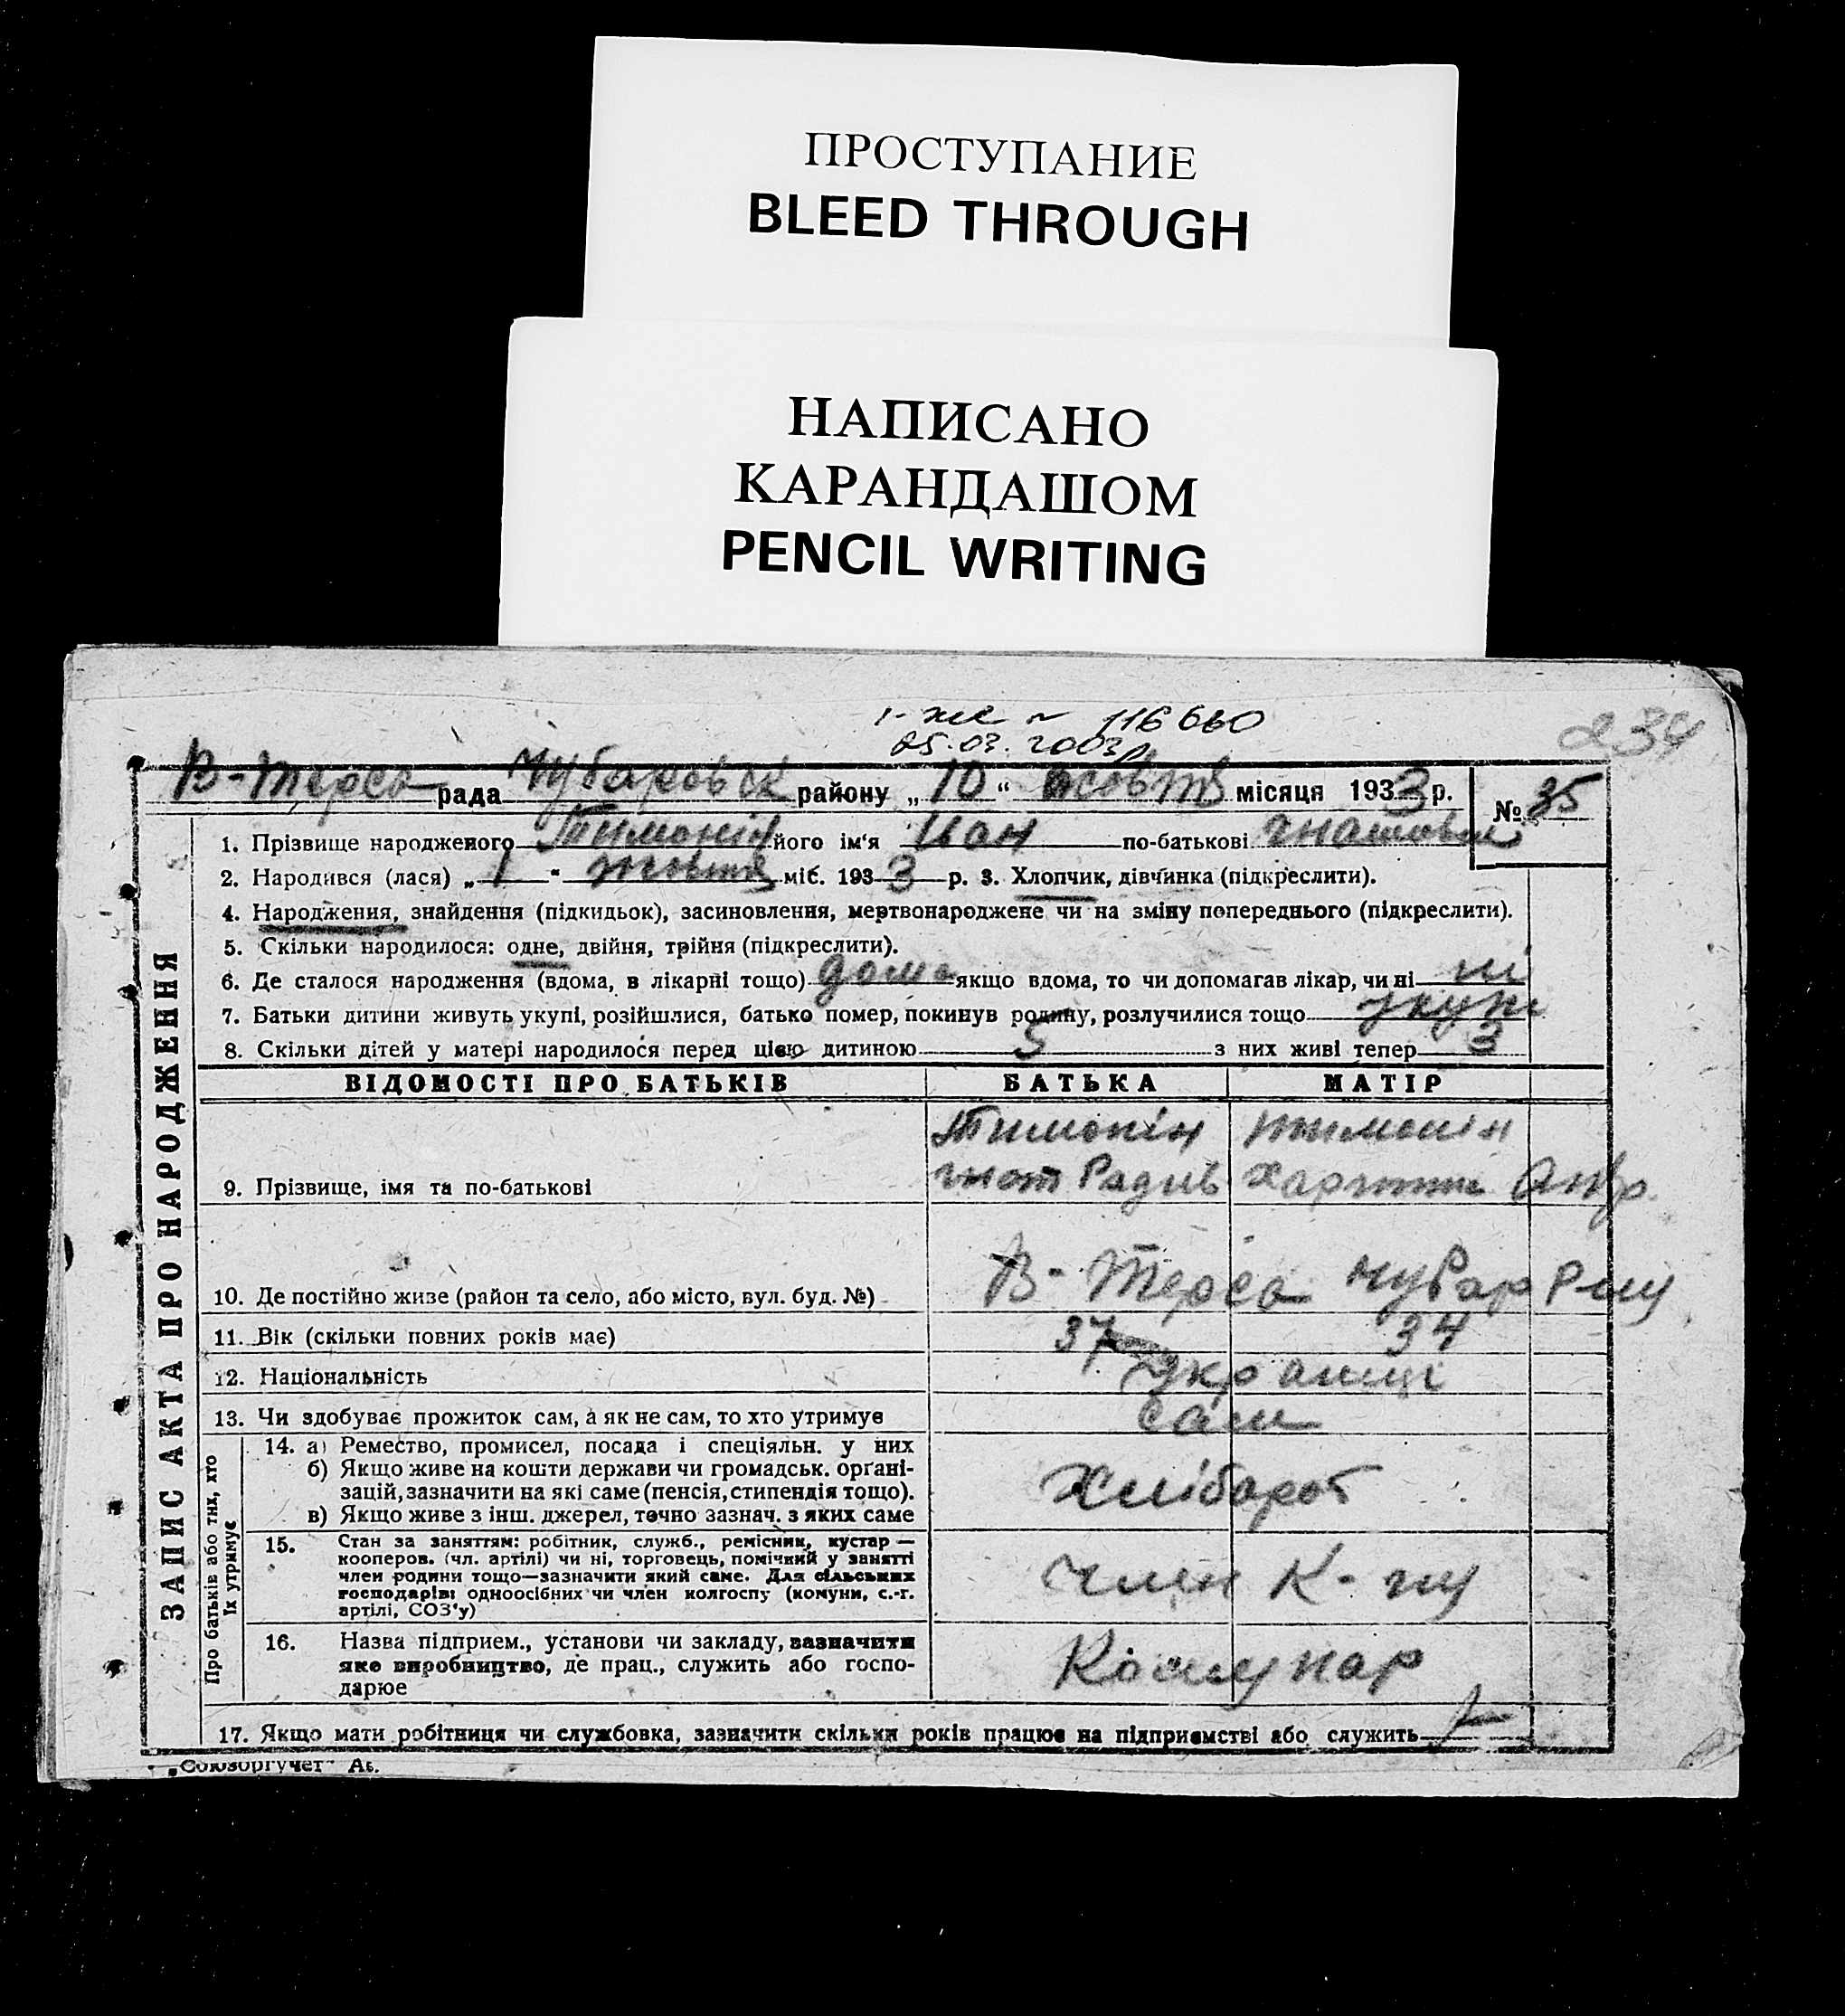 ПРОСТУПАНИЕ
BLEED THROUGH
НАПИСАНО
КАРАНДАШОМ
PENCIL WRITING
116660
05.03.2003
234
В-Терсь рада Чубаровск району „10“ жовтя місяця 1933 р. № 35
1. Прізвище народженого Тимонін його ім'я Иван по-батькові
2. Народився (лася) „1“ жовтя міс. 1933 р. 3. Хлопчик, дівчинка (підкреслити).
4. Народження, знайдення (підкидьок), засиновлення, мертвонароджене чи на зміну попереднього (підкреслити).
5. Скільки народилося: одне, двійня, трійня (підкреслити).
6. Де сталося народження (вдома, в лікарні тощо) дома якщо вдома, то чи допомагав лікар, чи ні ні
7. Батьки дитини живуть укупі, розійшлися, батько помер, покинув родину, розлучилися тощо укупі
8. Скільки дітей у матері народилося перед цією дитиною 5 з них живі тепер 3
ЗАПИС АКТА ПРО НАРОДЖЕННЯ
ВІДОМОСТІ ПРО БАТЬКІВ БАТЬКА МАТІР
Тимонін Тимонін
9. Прізвище, імя та по-батькові Гнат Радив Андр
10. Де постійно живе (район та село, або місто, вул. буд. №) В-Терсь Чубар Рну
11. Вік (скільки повних років має) 37 34
12. Національність українці
13. Чи здобуває прожиток сам, а як не сам, то хто утримує сам
Про батьків або тих, хто їх утримує
14. а) Ремество, промисел, посада і спеціяльн. у них
б) Якщо живе на кошти держави чи громадськ. орґані-
зацій, зазначити на які саме (пенсія, стипендія тощо). Хлібороб
в) Якщо живе з інш. джерел, точно зазнач. з яких саме
15. Стан за заняттям: робітник, служб., ремісник, кустар —
кооперов. (чл. артілі) чи ні, торговець, помічний у занятті
член родини тощо—зазначити який саме. Для сільських член К-пу
господарів: одноосібних чи член колгоспу (комуни, с.-г.
артілі, СОЗ'у)
16. Назва підприєм., установи чи закладу, зазначити
яке виробництво, де прац., служить або госпо- Комунар
дарює
17. Якщо мати робітниця чи службовка, зазначити скільки років працює на підприємстві або служить
„Союзоргучет“